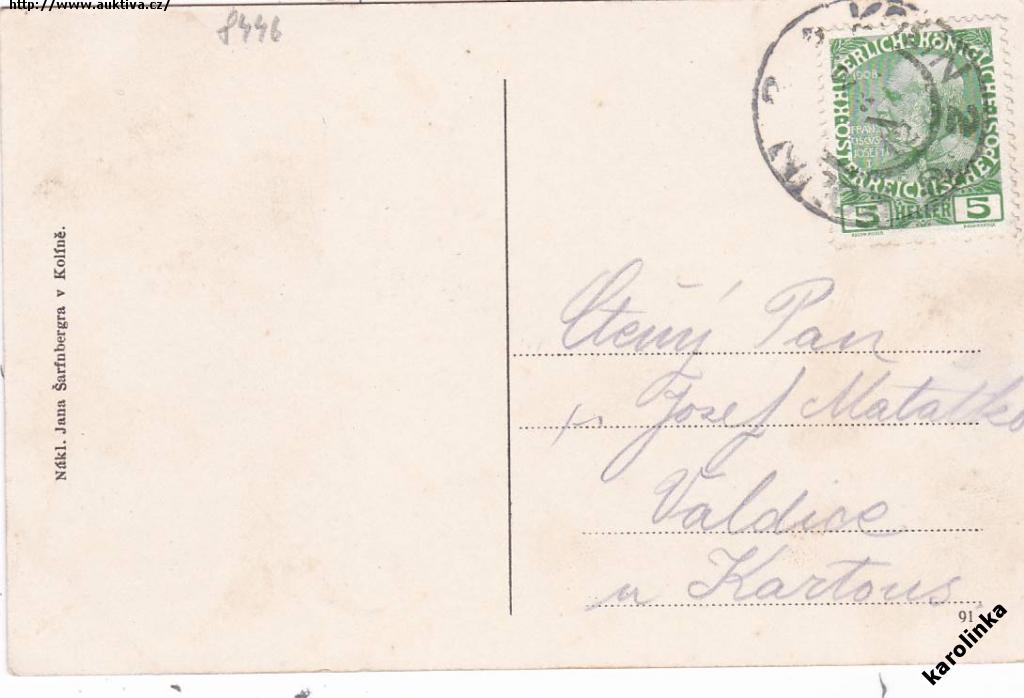 http://www.auktiva.cz/
8446
KOLÍN
1908
KAISERLICHE KÖNIGLICHE POST
ÖSTERREICHISCHE
FRANCISCVS JOSEPH I
5 HELLER 5
Nákl. Jana Šarfnbergra v Kolíně.
Ctěný Pan
Josef Matátko
Valdice
u Kartous
91
karolinka